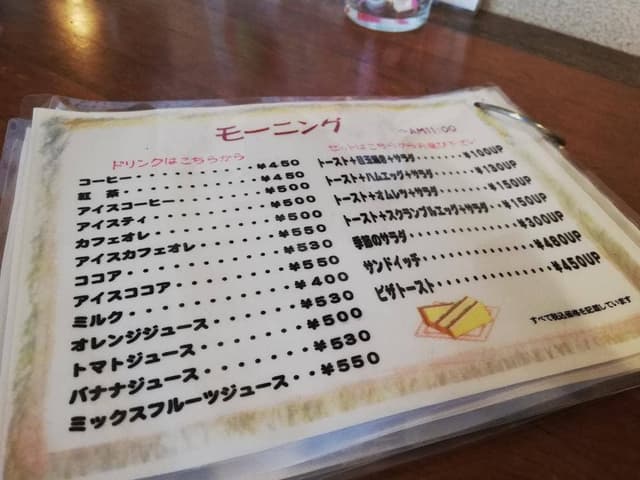 モーニング ～AM11:00
ドリンクはこちらから
コーヒー・・・・・・・・・・¥450
紅 茶・・・・・・・・・・¥450
アイスコーヒー・・・・・・・¥500
アイスティ・・・・・・・・・¥500
カフェオレ・・・・・・・・・¥500
アイスカフェオレ・・・・・・¥550
ココア・・・・・・・・・・¥530
アイスココア・・・・・・・¥550
ミルク・・・・・・・・・・¥400
オレンジジュース・・・・・¥530
トマトジュース・・・・・・¥500
バナナジュース・・・・・・¥530
ミックスフルーツジュース・・¥550
セットはこちらからお選び下さい
トースト+目玉焼き+サラダ・・・・・・・¥100UP
トースト+ハムエッグ+サラダ・・・・・・¥130UP
トースト+オムレツ+サラダ・・・・・・・¥150UP
トースト+スクランブルエッグ+サラダ・・・¥150UP
季節のサラダ・・・・・・・・・・・・¥300UP
サンドイッチ・・・・・・・・・・・・¥480UP
ピザトースト・・・・・・・・・・・・¥450UP
すべて税込価格を記載しています